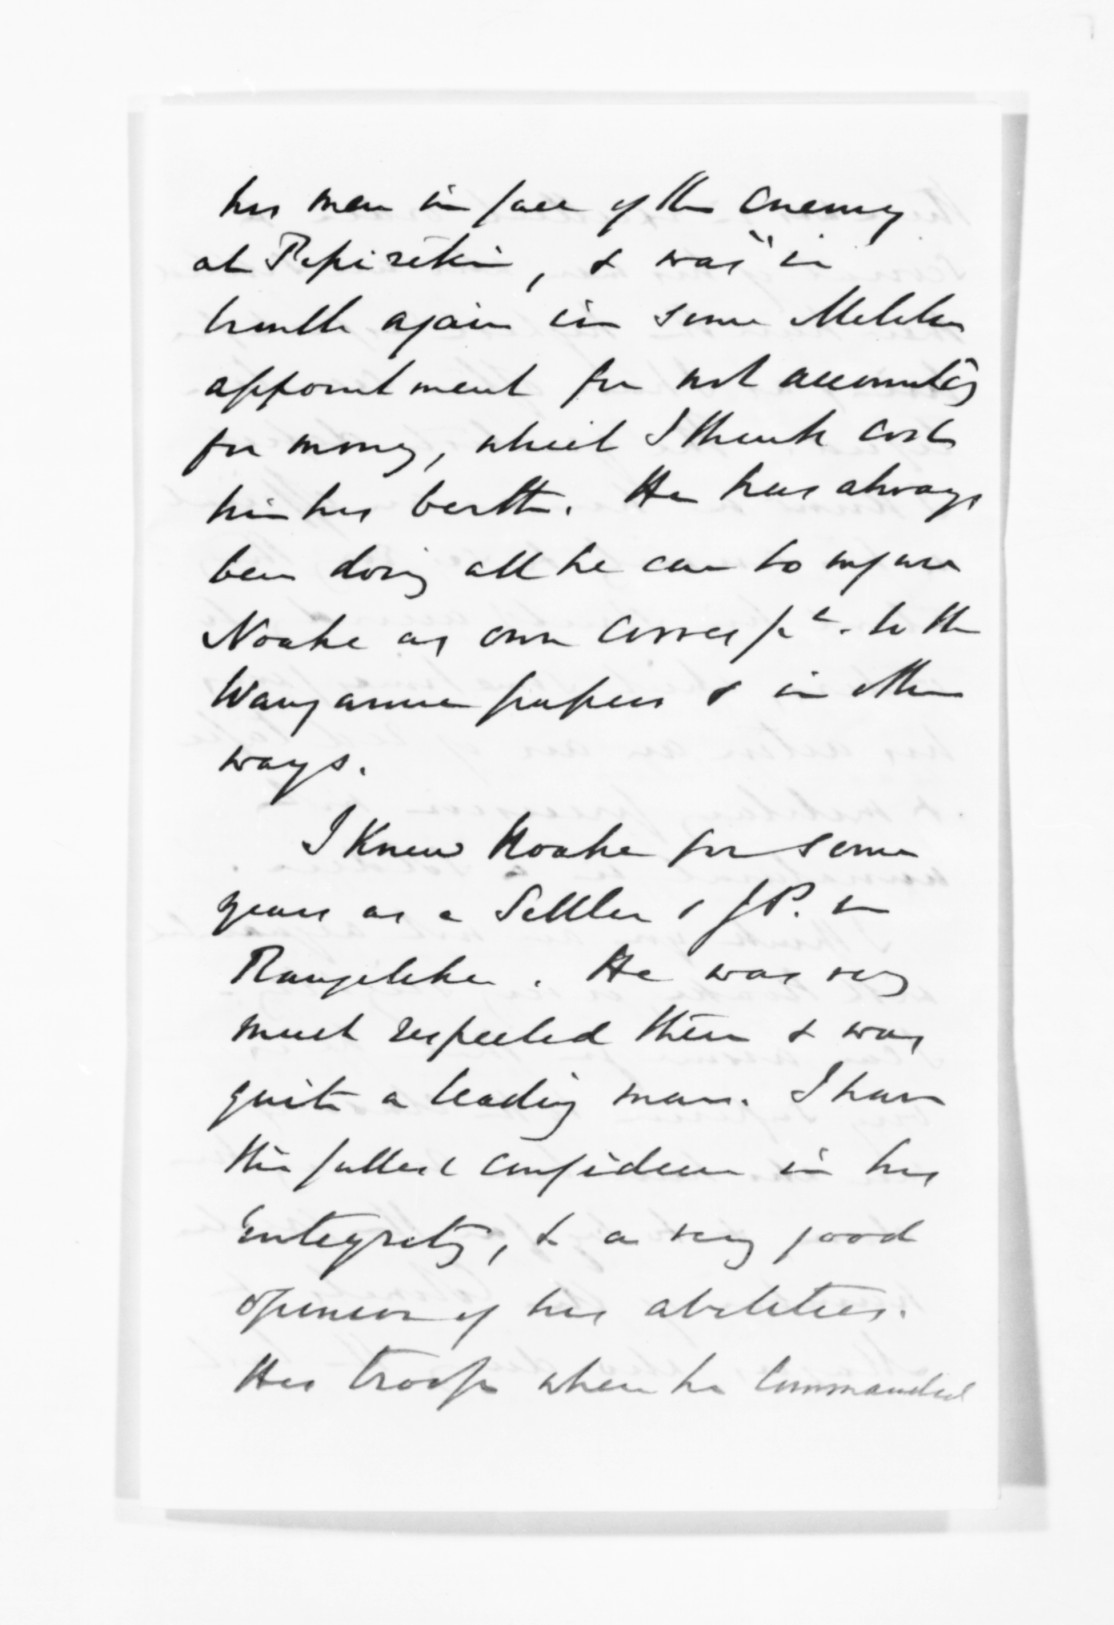 his men in face of the enemy
at Pipiriki, & was in
trouble again in some Militia
appointment for not accounting
for money, which I think cost
him his berth. He has always
been doing all he can to injure
Noake as own Corresp<sup>t</sup>. to the
Wanganui papers & in other
ways.
I knew Noake for some
years as a Settler & J.P. in
Rangitikei. He was very
much respected there & was
quite a leading man. I have
the fullest confidence in his
integrity, & a very good
opinion of his abilities.
His troop when he commanded